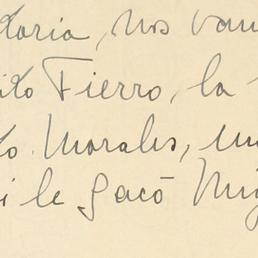 toria, nos vam
ito Fierro, la
to. Morales, un
i le Gacō Mig